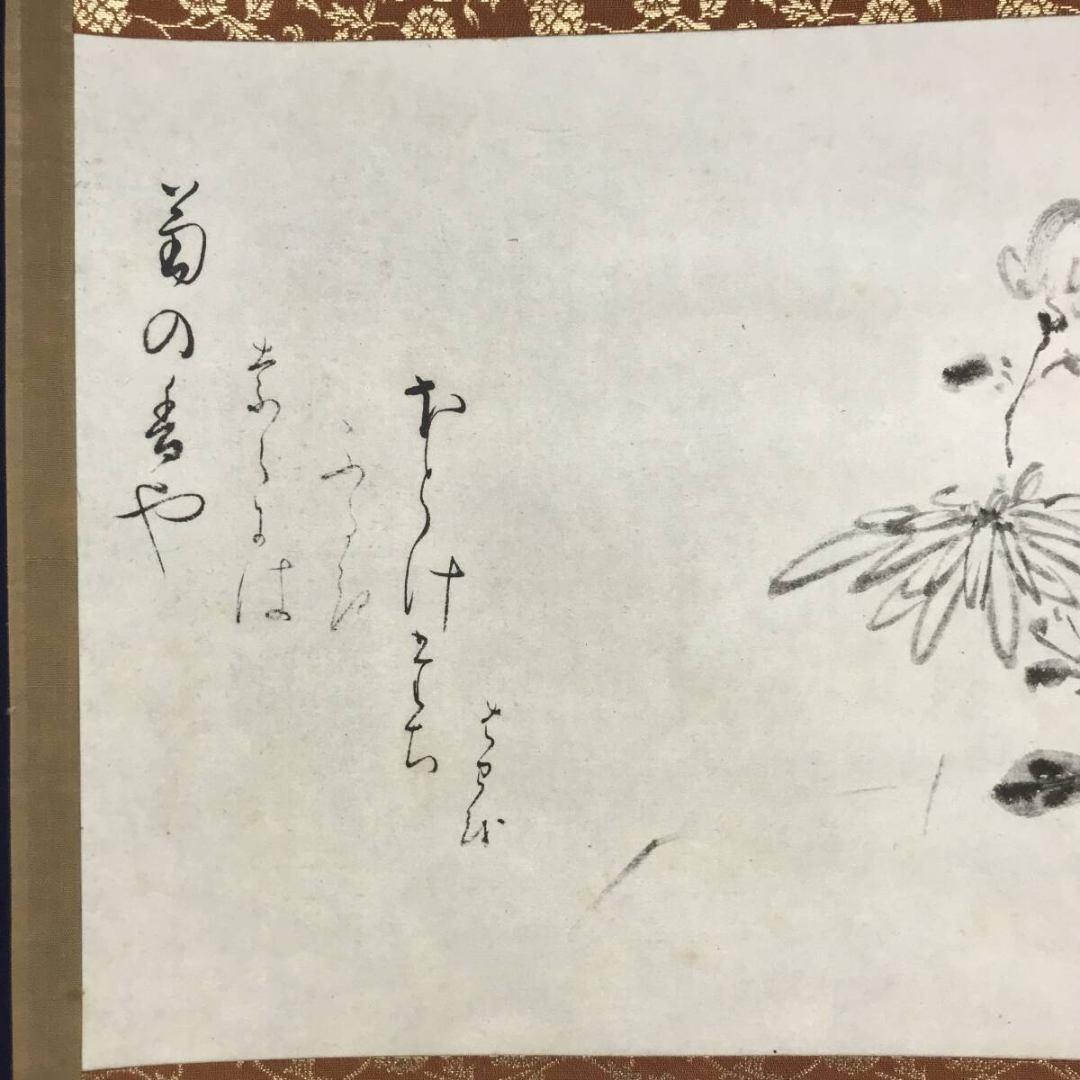 菊の香や
奈らには
ふるき
ほとけたち
はせを